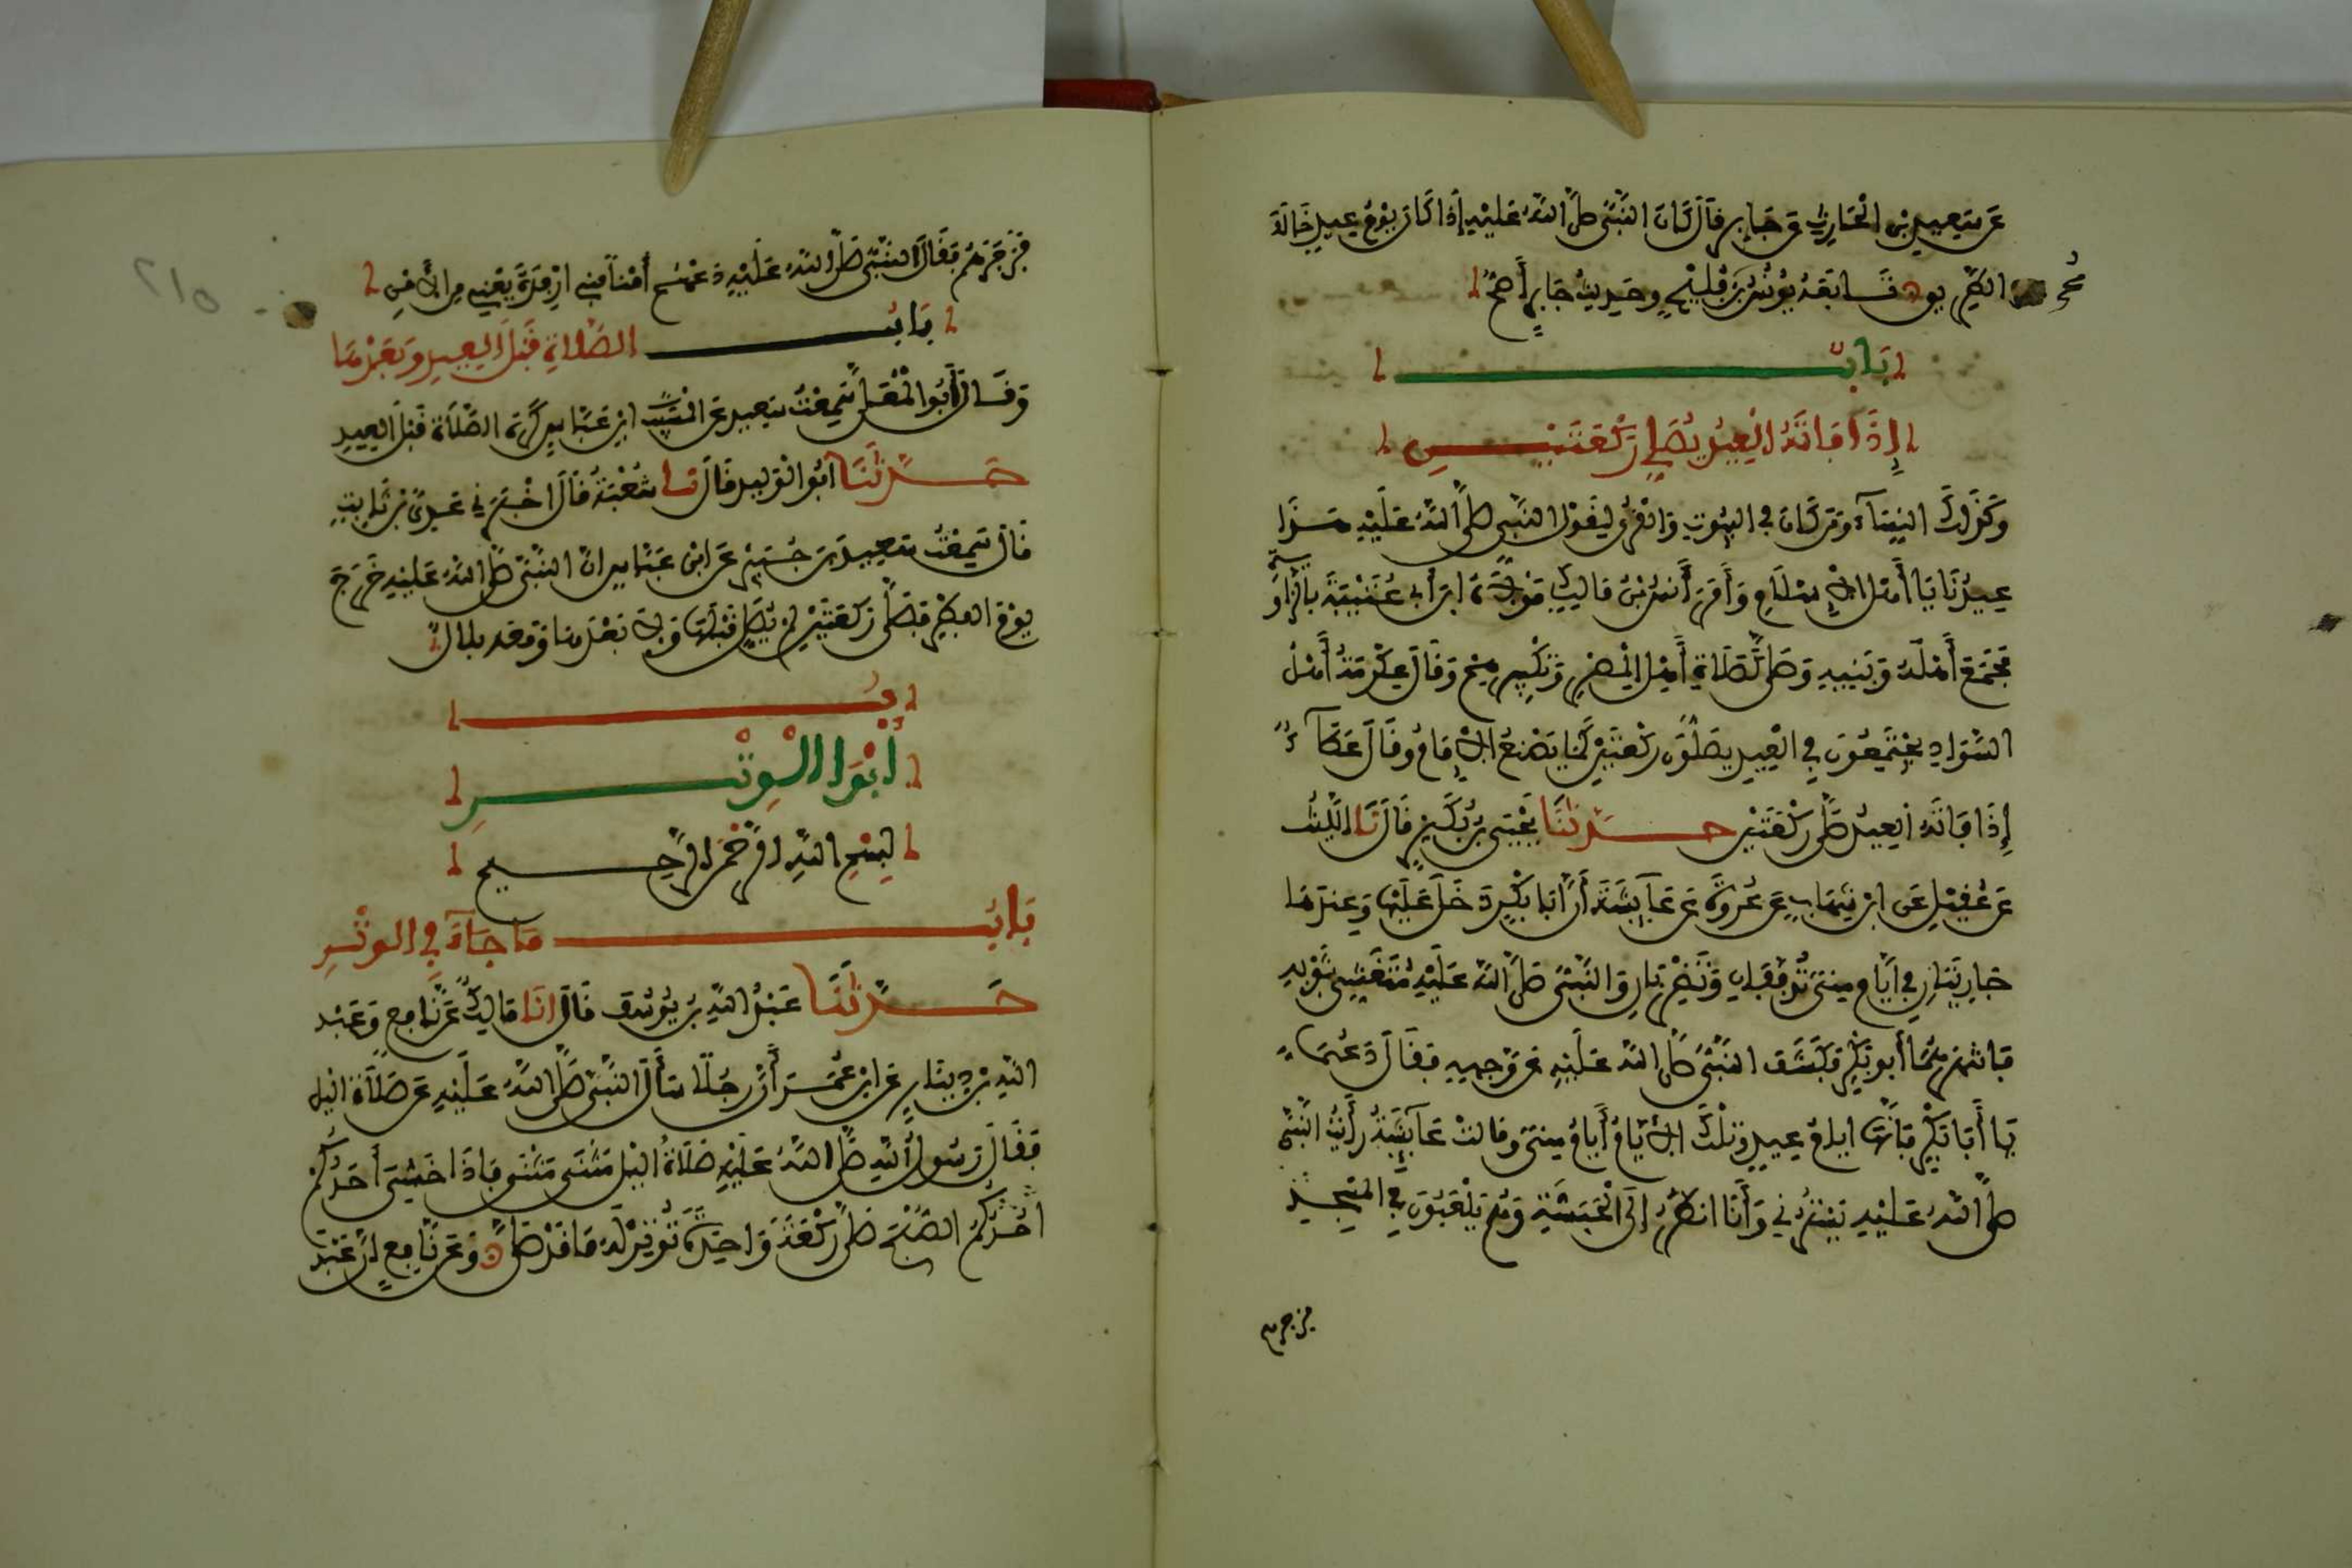 عَن سَعِيدِ بْنِ الْحَارِثِ عَن جَابِرٍ قَالَ كَانَ النَّبِيُّ صَلَّى اللَّهُ عَلَيْهِ إِذَا كَانَ يَوْمُ عِيدٍ خَالَفَ
الطَّرِيقَ تَابَعَهُ يُونُسُ بْنُ فُلَيْحٍ وَحَدِيثُ جَابِرٍ أَصَحُّ
بَابٌ
إِذَا فَاتَهُ الْعِيدُ يُصَلِّي رَكْعَتَيْنِ
وَكَذَلِكَ النِّسَآءُ وَمَن كَانَ فِي الْبُيُوتِ وَالْقُرَى لِقَوْلِ النَّبِيِّ صَلَّى اللَّهُ عَلَيْهِ هَذَا
عِيدُنَا يَا أَهْلَ الْإِسْلَامِ وَأَمَرَ أَنَسُ بْنُ مَالِكٍ مَوْلَاهُ ابْنَ أَبِي عُتْبَةَ بِالزَّاوِيَةِ
فَجَمَعَ أَهْلَهُ وَبَنِيهِ وَصَلَّى كَصَلَاةِ أَهْلِ الْمِصْرِ وَتَكْبِيرِهِمْ وَقَالَ عِكْرِمَةُ أَهْلُ
السَّوَادِ يَجْتَمِعُونَ فِي الْعِيدِ يُصَلُّونَ رَكْعَتَيْنِ كَمَا يَصْنَعُ الْإِمَامُ وَقَالَ عَطَآءٌ
إِذَا فَاتَهُ الْعِيدُ صَلَّى رَكْعَتَيْنِ حَدَّثَنَا يَحْيَى بْنُ بُكَيْرٍ قَالَ نَا اللَّيْثُ
عَن عُقَيْلٍ عَنِ ابْنِ شِهَابٍ عَن عُرْوَةَ عَن عَآئِشَةَ أَنَّ أَبَا بَكْرٍ دَخَلَ عَلَيْهَا وَعِندَهَا
جَارِيَتَانِ فِي أَيَّامِ مِنًى تُدَفِّفَانِ وَتَضْرِبَانِ وَالنَّبِيُّ صَلَّى اللَّهُ عَلَيْهِ مُتَغَشٍّ بِثَوْبِهِ
فَانْتَهَرَهُمَا أَبُو بَكْرٍ فَكَشَفَ النَّبِيُّ صَلَّى اللَّهُ عَلَيْهِ عَن وَجْهِهِ فَقَالَ دَعْهُمَا
يَا أَبَا بَكْرٍ فَإِنَّهَا أَيَّامُ عِيدٍ وَتِلْكَ الْأَيَّامُ أَيَّامُ مِنًى وَقَالَتْ عَآئِشَةُ رَأَيْتُ النَّبِيَّ
صَلَّى اللَّهُ عَلَيْهِ يَسْتُرُنِي وَأَنَا أَنظُرُ إِلَى الْحَبَشَةِ وَهُمْ يَلْعَبُونَ فِي الْمَسْجِدِ
فزجرهم
فَزَجَرَهُمْ فَقَالَ النَّبِيُّ صَلَّى اللَّهُ عَلَيْهِ دَعْهُمْ أَمْنًا بَنِي أَرْفِدَةَ يَعْنِي مِنَ الْأَمْنِ
بَابُ الصَّلَاةِ قَبْلَ الْعِيدِ وَبَعْدَهَا
وَقَالَ أَبُو الْمُعَلَّى سَمِعْتُ سَعِيدًا عَنِ ابْنِ عَبَّاسٍ كَرِهَ الصَّلَاةَ قَبْلَ الْعِيدِ
حَدَّثَنَا أَبُو الْوَلِيدِ قَالَ نَا شُعْبَةُ قَالَ أَخْبَرَنِي عَدِيُّ بْنُ ثَابِتٍ
قَالَ سَمِعْتُ سَعِيدَ بْنَ جُبَيْرٍ عَنِ ابْنِ عَبَّاسٍ أَنَّ النَّبِيَّ صَلَّى اللَّهُ عَلَيْهِ خَرَجَ
يَوْمَ الْفِطْرِ فَصَلَّى رَكْعَتَيْنِ لَمْ يُصَلِّ قَبْلَهَا وَلَا بَعْدَهَا وَمَعَهُ بِلَالٌ
أَبْوَابُ الْوِتْرِ
بِسْمِ اللَّهِ الرَّحْمَنِ الرَّحِيمِ
بَابُ مَا جَآءَ فِي الْوِتْرِ
حَدَّثَنَا عَبْدُ اللَّهِ بْنُ يُوسُفَ قَالَ أَنَا مَالِكٌ عَن نَافِعٍ وَعَبْدِ
اللَّهِ بْنِ دِينَارٍ عَنِ ابْنِ عُمَرَ أَنَّ رَجُلًا سَأَلَ النَّبِيَّ صَلَّى اللَّهُ عَلَيْهِ عَن صَلَاةِ اللَّيْلِ
فَقَالَ رَسُولُ اللَّهِ صَلَّى اللَّهُ عَلَيْهِ صَلَاةُ اللَّيْلِ مَثْنَى مَثْنَى فَإِذَا خَشِيَ أَحَدُكُمْ
أَحَدُكُمُ الصُّبْحَ صَلَّى رَكْعَةً وَاحِدَةً تُوتِرُ لَهُ مَا قَدْ صَلَّى وَعَن نَافِعٍ أَنَّ عَبْدَ